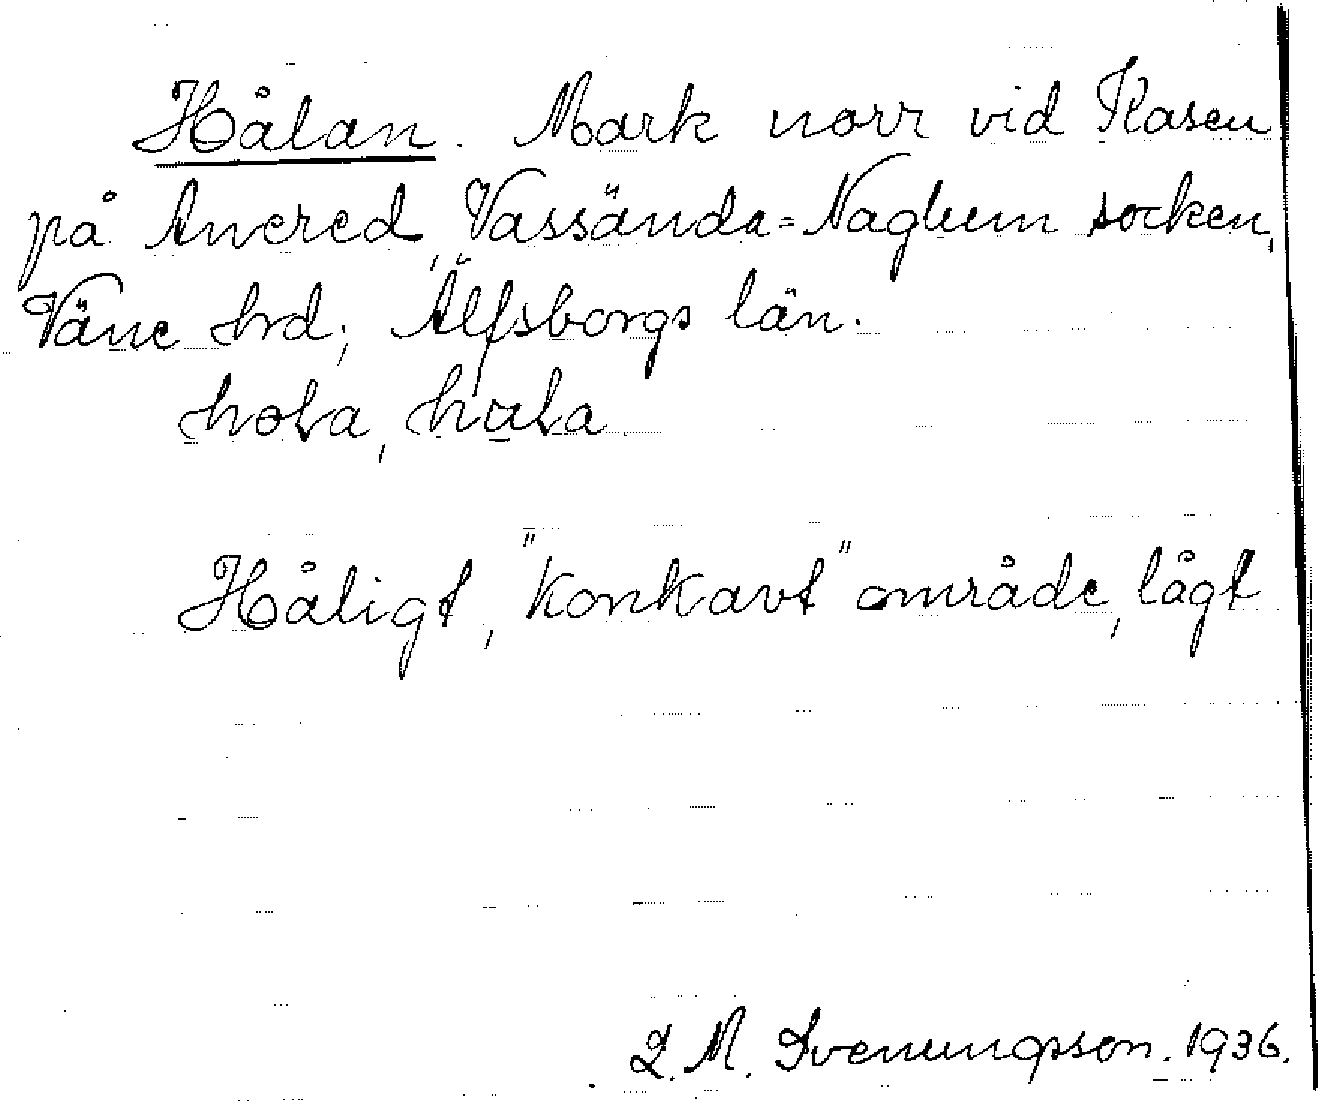 Hålan. Mark norr vid Kasen
på Anered, Vassända=Naglum socken,
Väne hrd; Älfsborgs län.
Håligt, "konkavt" område, lågt
D. M. Svenungsson. 1936.